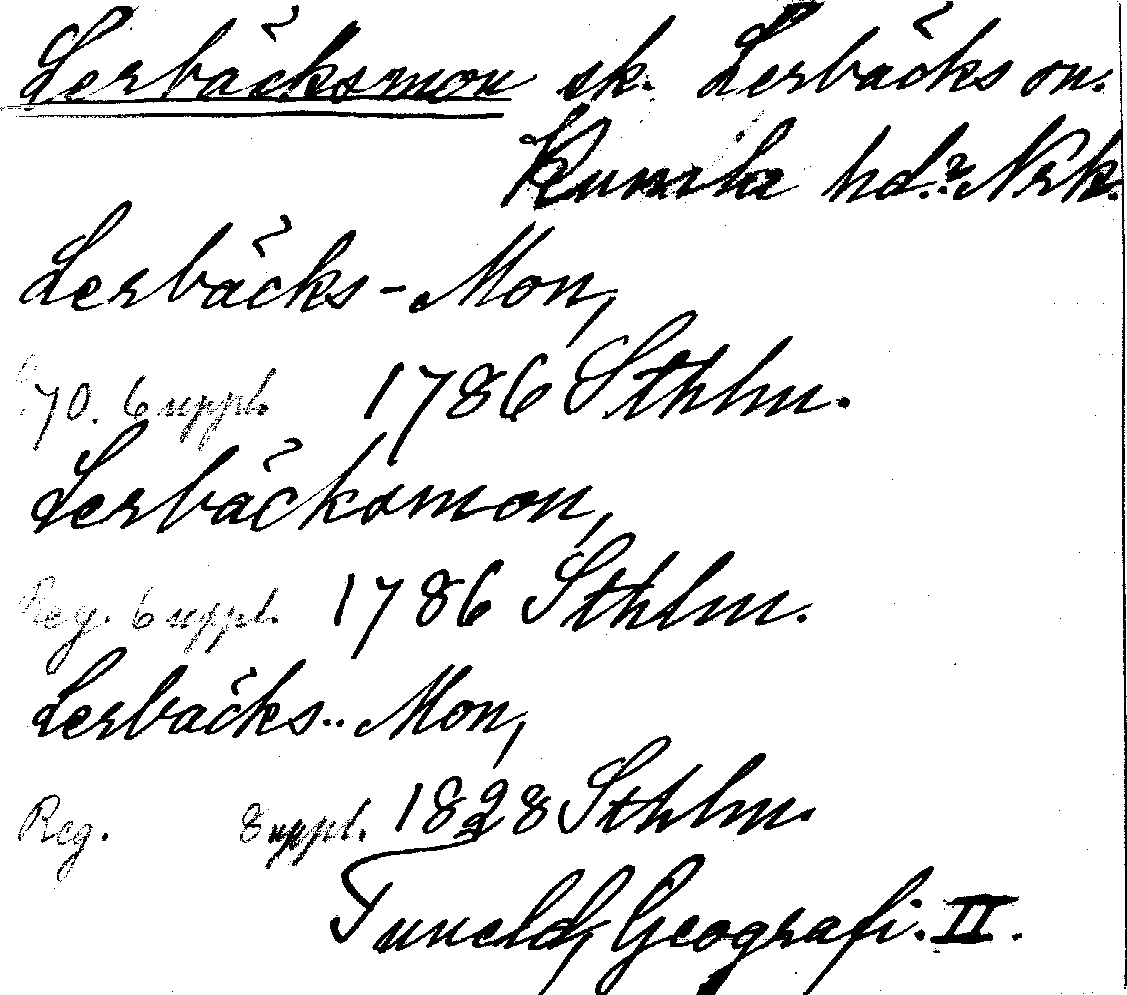 Lerbäcksmon sk. Lerbäcks sn.
Kumla hd. Nrk.
Lerbäcks-Mon,
170. 6 uppl. 1786 Sthlm.
Lerbäcksmon,
Reg. 6 uppl. 1786 Sthlm.
Lerbäcks-Mon,
Reg. 8 uppl. 1828 Sthlm.
Tuneld, Geografi. II.